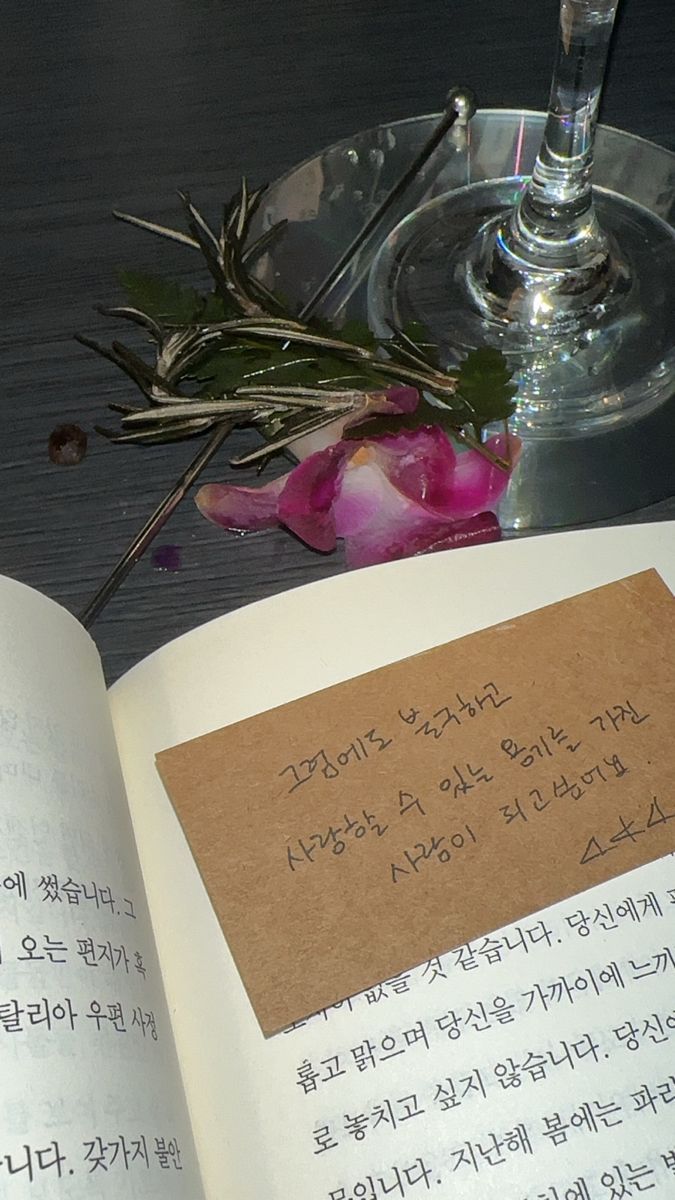 그럼에도 불구하고
사랑할 수 있는 용기를 가진
사람이 되고싶어요.
에 썼습니다. 그
오는 편지가 혹
탈리아 우편 사정
니다. 갖가지 불안
없을 것 같습니다. 당신에게
롭고 맑으며 당신을 가까이에 느끼
로 놓치고 싶지 않습니다. 당신
입니다. 지난해 봄에는 파리
에 있는